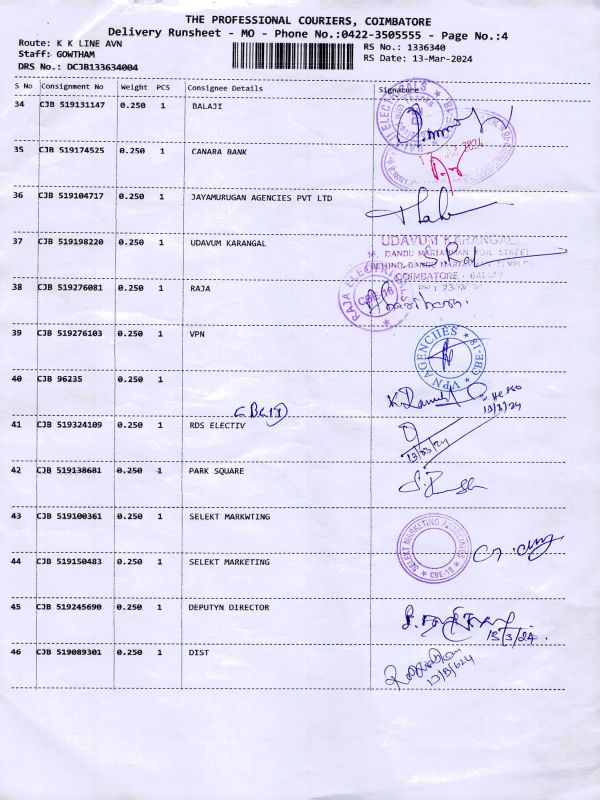 THE PROFESSIONAL COURIERS, COIMBATORE
Delivery Runsheet - MO - Phone No.:0422-3505555 - Page No.:4
Route: K K LINE AVN
Staff: GOWTHAM
DRS No.: DCJB133634004
RS No.: 1336340
RS Date: 13-Mar-2024
S No Consignment No Weight PCS Consignee Details Signature
34 CJB 519131147 0.250 1 BALAJI
35 CJB 519174525 0.250 1 CANARA BANK
36 CJB 519104717 0.250 1 JAYAMURUGAN AGENCIES PVT LTD
37 CJB 519198220 0.250 1 UDAVUM KARANGAL
UDAVUM KARANGAL
COIMBATORE
38 CJB 519276081 0.250 1 RAJA
RAJA ELECTRICALS
CBE-18
39 CJB 519276103 0.250 1 VPN
VPN AGENCHES ★ CBE-18 ★
40 CJB 96235 0.250 1
13/3/24
41 CJB 519324109 0.250 1 RDS ELECTIV
13/03/24
42 CJB 519138681 0.250 1 PARK SQUARE
43 CJB 519100361 0.250 1 SELEKT MARKWTING
SELEKT MARKETING
★ CBE-18 ★
44 CJB 519150483 0.250 1 SELEKT MARKETING
45 CJB 519245690 0.250 1 DEPUTYN DIRECTOR
13/3/24.
46 CJB 519089301 0.250 1 DIST